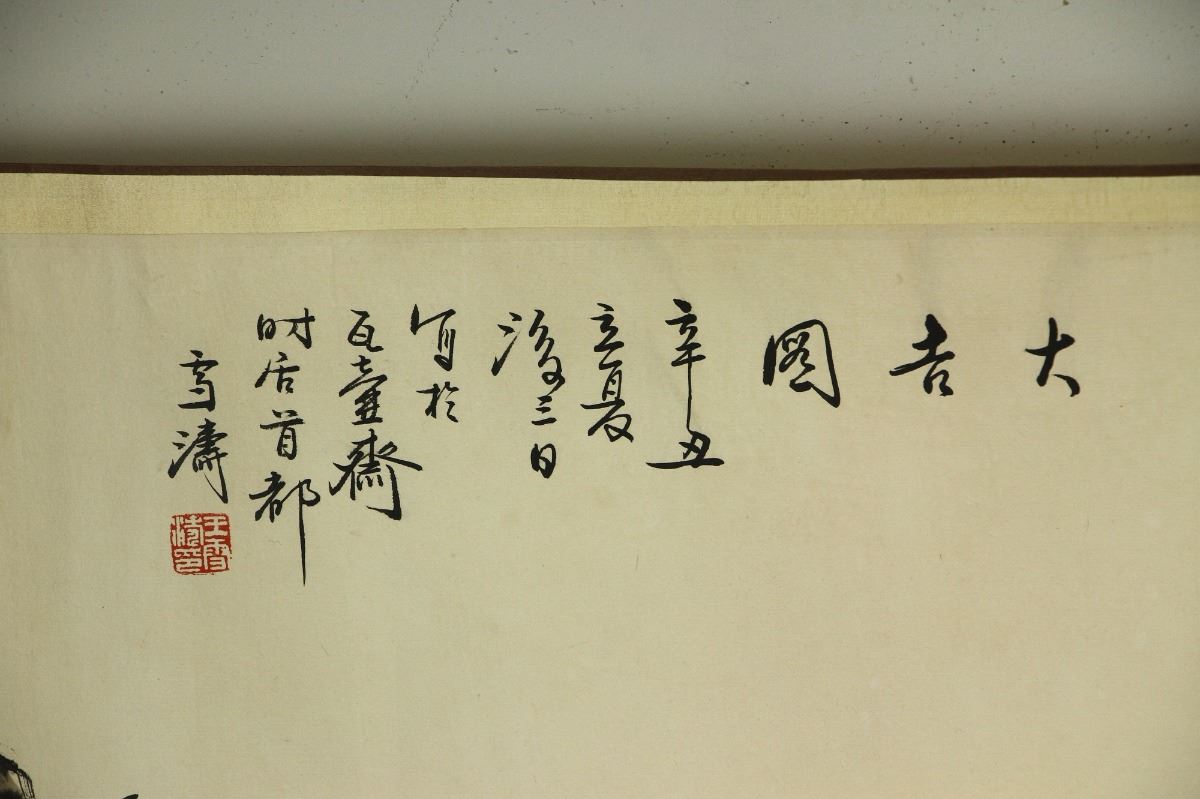 大吉圖
辛丑
立夏
後三日
写於
瓦壷齋
时居首都
雪濤
王雪濤印